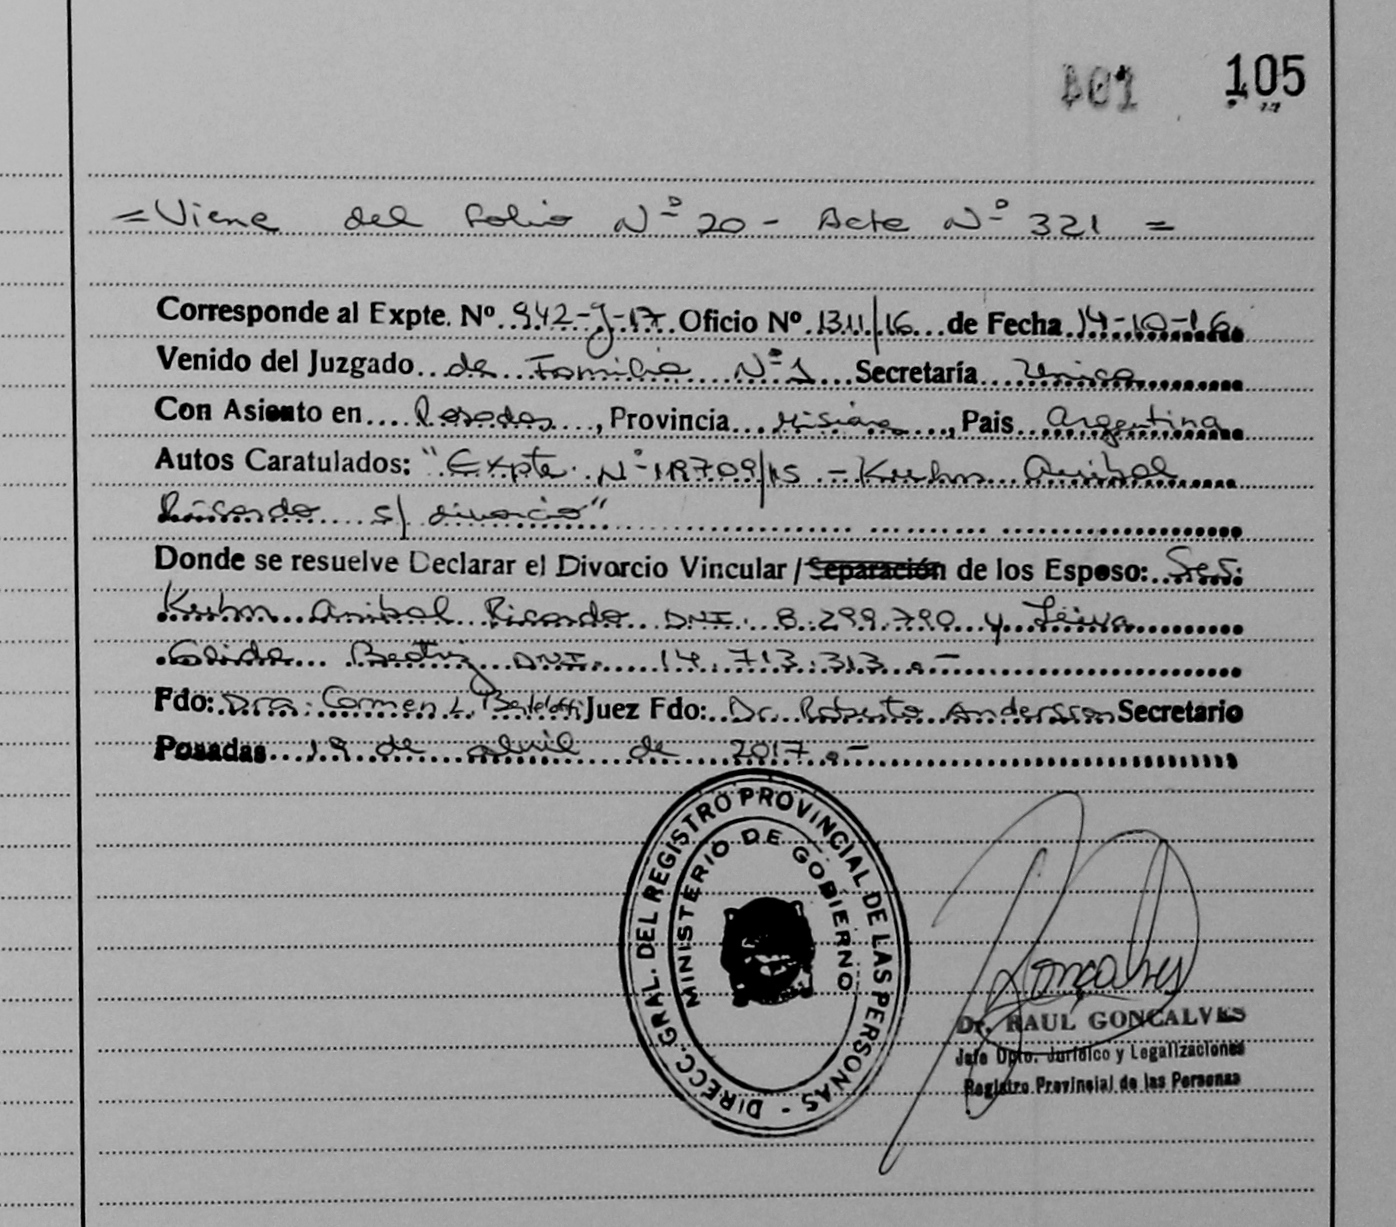 101 105
= Viene del folio Nº 20 - Acta Nº 321 =
Corresponde al Expte. Nº 942-J-17 Oficio Nº 1311/16 de Fecha 14-10-16
Venido del Juzgado de Familia Nº 1 Secretaría Unica
Con Asiento en Posadas, Provincia Misiones, Pais Argentina
Autos Caratulados: "Expte. Nº 118709/15 - Kuhn Anibal
Ricardo s/ divorcio"
Donde se resuelve Declarar el Divorcio Vincular / Separación de los Esposo: Sres.
Kuhn Anibal Ricardo DNI. 8.299.790 y Leiva
Beatriz DNI. 14.713.313.-
Fdo: Dra. Carmen L. Juez Fdo: Dr. Roberto Andersson Secretario
Posadas 19 de abril de 2017.-
DIRECC. GRAL. DEL REGISTRO PROVINCIAL DE LAS PERSONAS -
MINISTERIO DE GOBIERNO
Gonçalves
Dr. RAUL GONCALVES
Jefe Dpto. Jurídico y Legalizaciones
Registro Provincial de las Personas